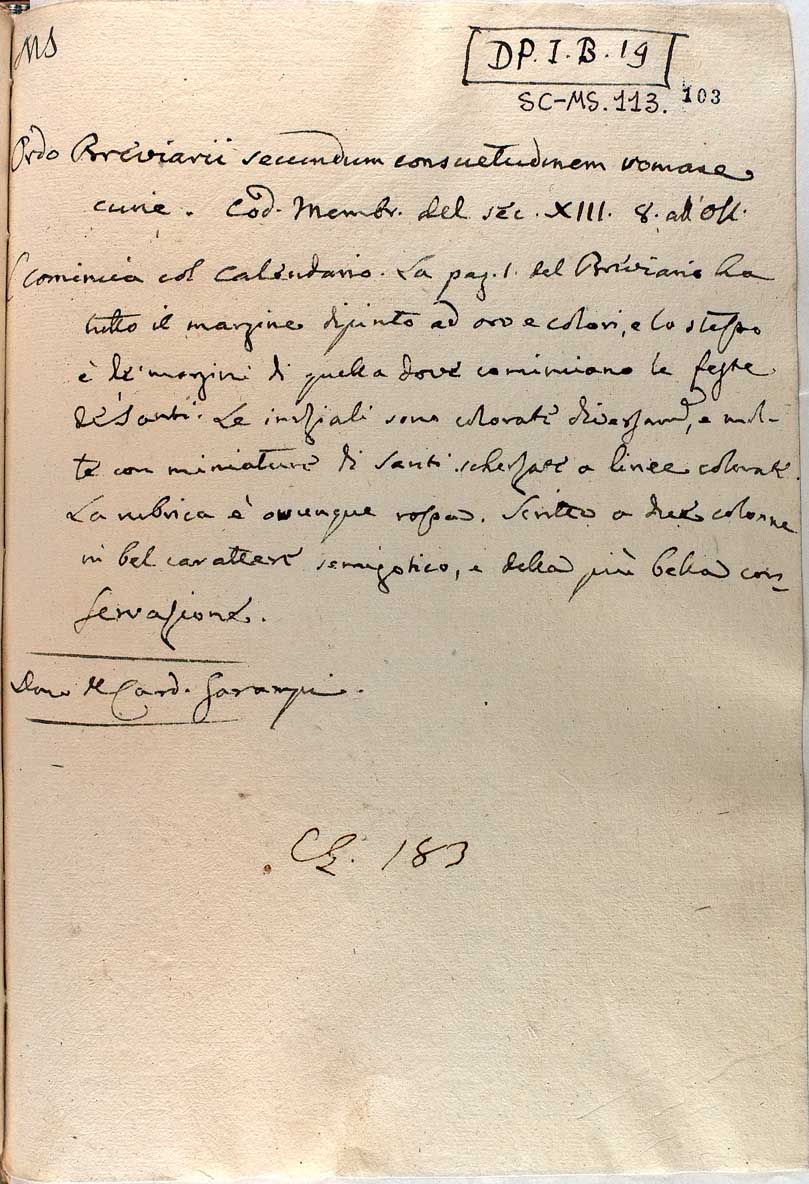 MS
DP. I. B. 19
SC-MS. 113. 103
Ordo Breviarii secundum consuetudinem romane
curie. Cod. Membr. del sec. XIII. 8. all'Oss.
Comincia col Calendario. La pag. 1. del Breviario ha
tutto il margine dipinto ad oro e colori, e lo stesso
è de' margini di quella dove cominciano le feste
de' Santi. Le iniziali sono colorate diversam., e mol-
te con miniature di Santi scherzate a linee colorate.
La rubrica è ovunque rossa. Scritto a due colonne
in bel carattere semigotico, e della più bella con-
servazione.
Dono del Card. Garampi.
183